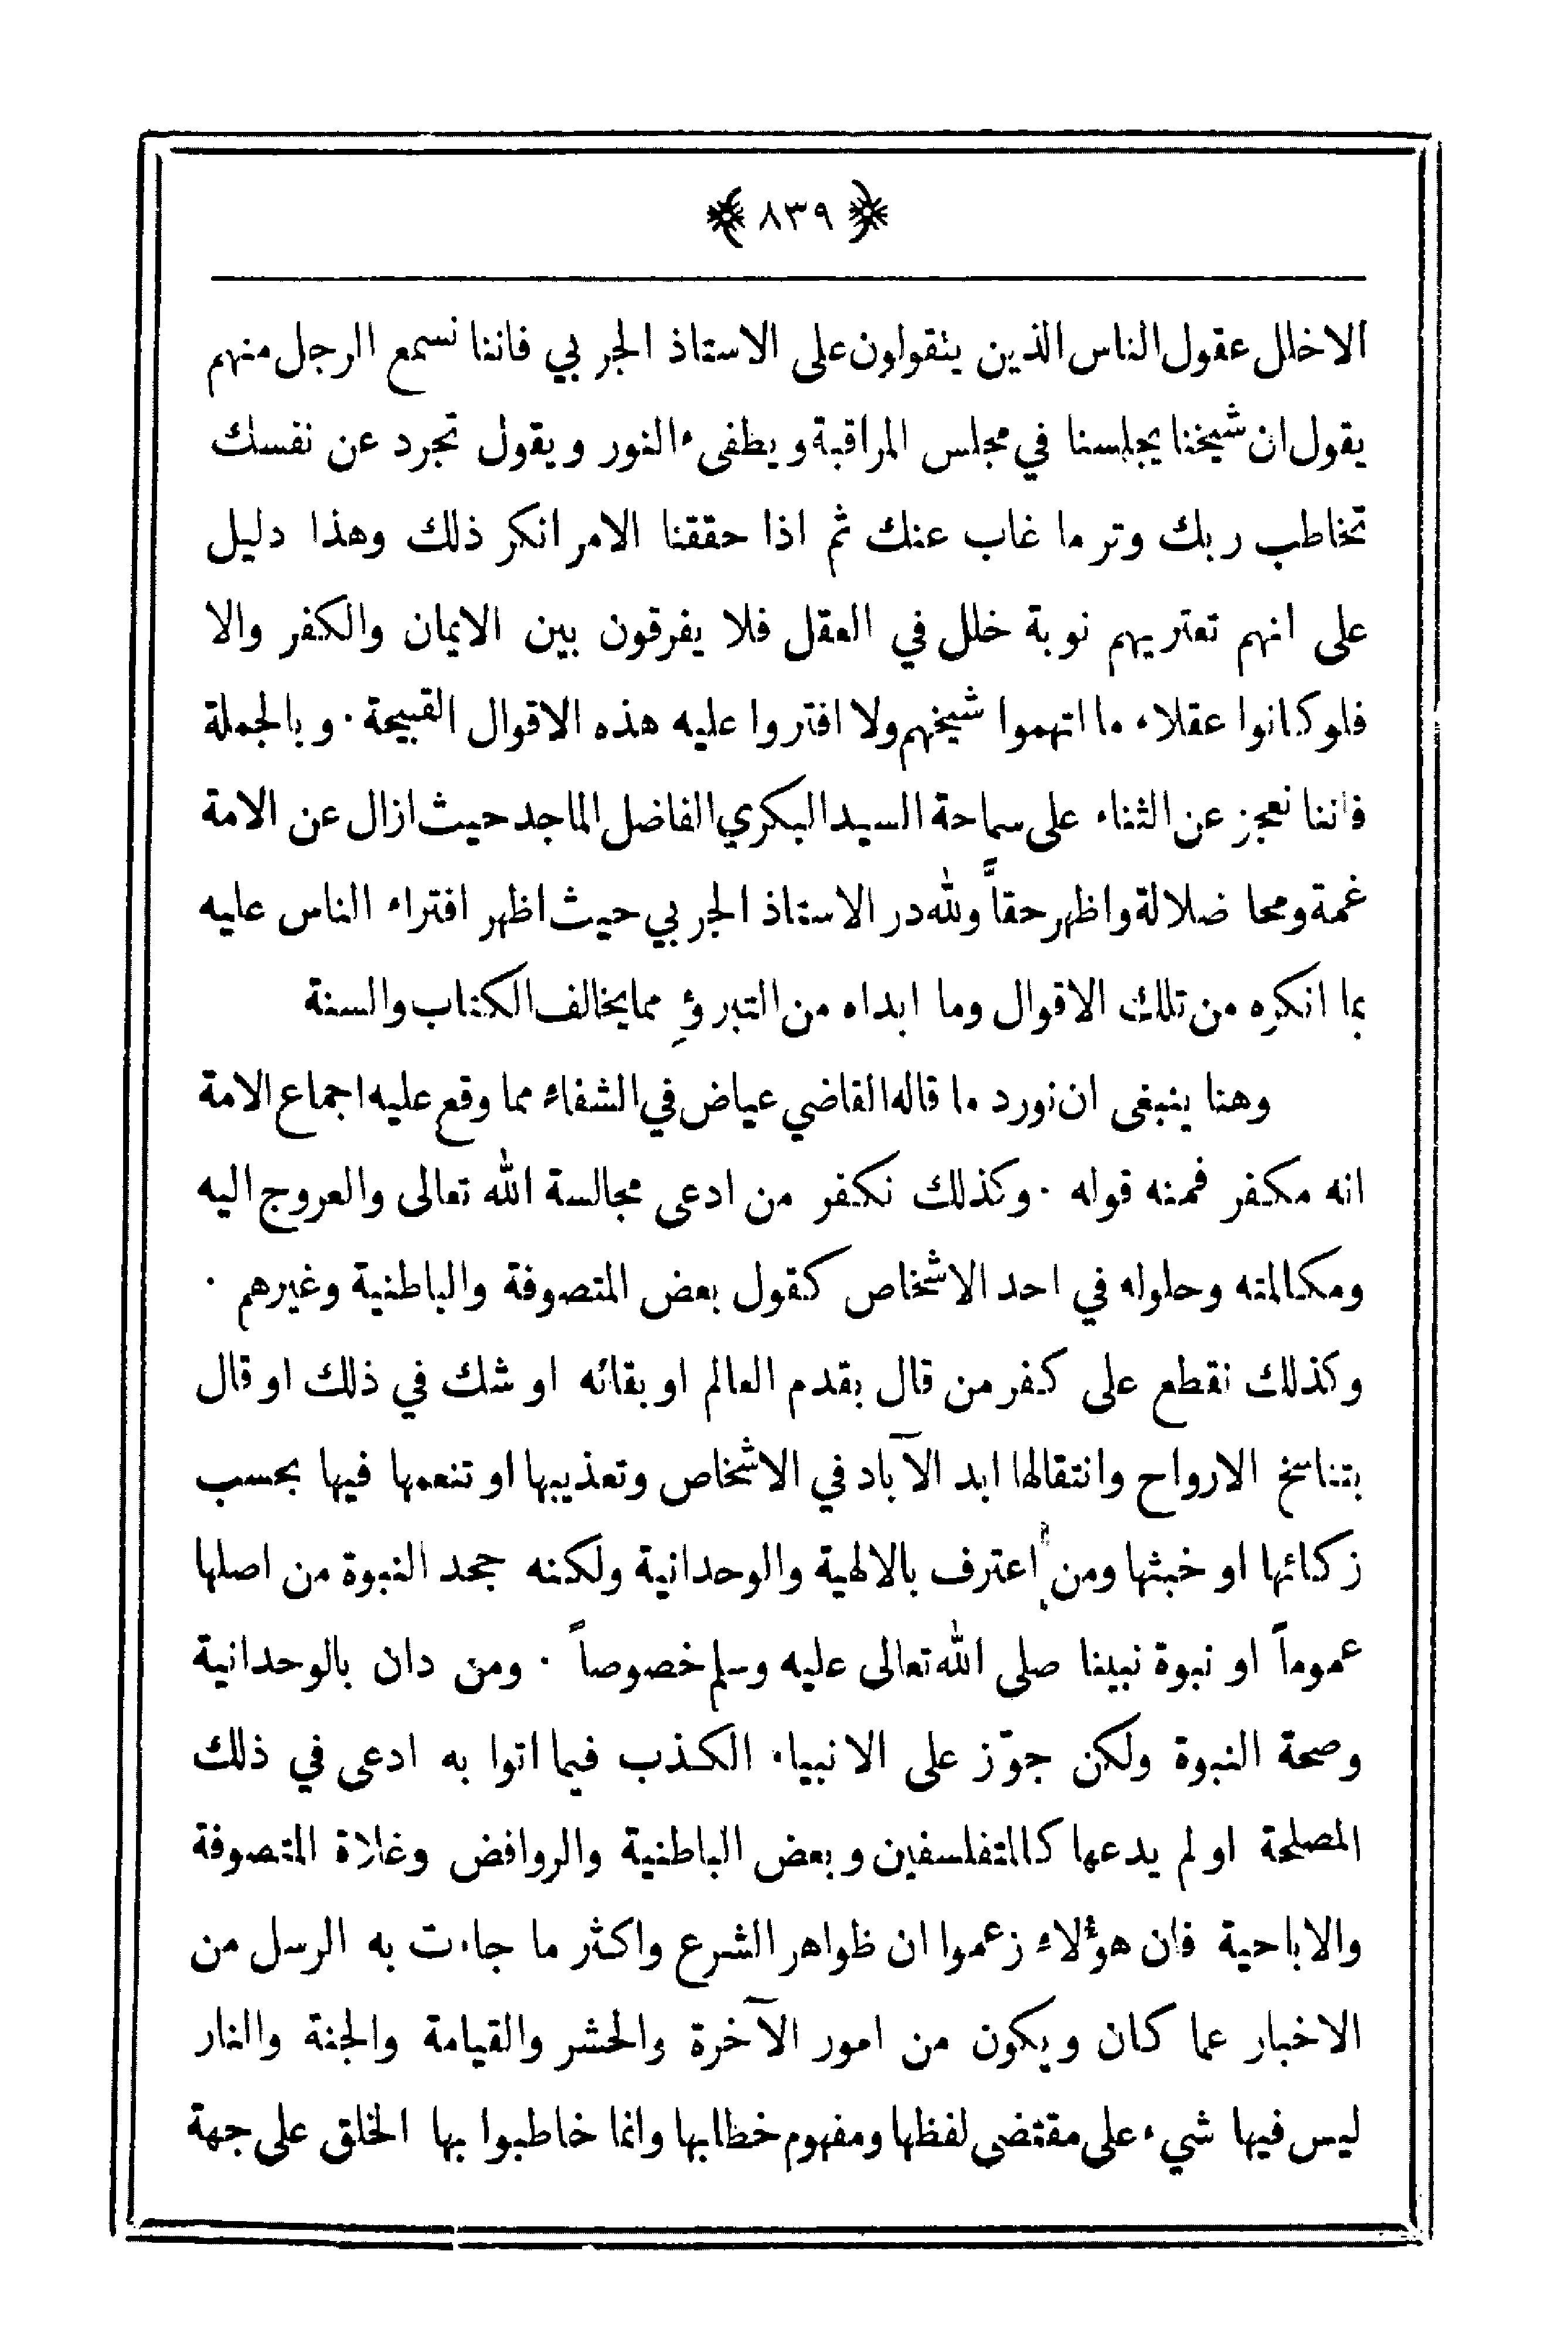 ﴿ ٨٣٩ ﴾
الاخلل عقول الناس الذين يتقولون على الاستاذ الجربي فاننا نسمع الرجل منهم
يقول ان شيخنا يجلسنا في مجلس المراقبة ويطفىء النور ويقول تجرد عن نفسك
تخاطب ربك وتر ما غاب عنك ثم اذا حققنا الامر انكر ذلك وهذا دليل
على انهم تعتريهم نوبة خلل في العقل فلا يفرقون بين الايمان والكفر والا
فلو كانوا عقلاء ما اتهموا شيخهم ولا افتروا عليه هذه الاقوال القبيحة . وبالجملة
فاننا نعجز عن الثناء على سماحة السيد البكري الفاضل الماجد حيث ازال عن الامة
غمة ومحا ضلالة واظهر حقاً ولله در الاستاذ الجربي حيث اظهر افتراء الناس عليه
بما انكره من تلك الاقوال وما ابداه من التبرؤ مما يخالف الكتاب والسنة
وهنا ينبغى ان نورد ما قاله القاضي عياض في الشفاء مما وقع عليه اجماع الامة
انه مكفر فمنه قوله . وكذلك نكفر من ادعى مجالسة الله تعالى والعروج اليه
ومكالمته وحلوله في احد الاشخاص كقول بعض المتصوفة والباطنية وغيرهم .
وكذلك نقطع على كفر من قال بقدم العالم او بقائه او شك في ذلك او قال
بتناسخ الارواح وانتقالها ابد الآباد في الاشخاص وتعذيبها او تنعمها فيها بحسب
زكائها او خبثها ومن اعترف بالالهية والوحدانية ولكنه جحد النبوة من اصلها
عموماً او نبوة نبينا صلى الله تعالى عليه وسلم خصوصاً . ومن دان بالوحدانية
وصحة النبوة ولكن جوّز على الانبياء الكذب فيما اتوا به ادعى في ذلك
المصلحة او لم يدعها كالمتفلسفين وبعض الباطنية والروافض وغلاة المتصوفة
والاباحية فان هؤلاء زعموا ان ظواهر الشرع واكثر ما جاءت به الرسل من
الاخبار عما كان ويكون من امور الآخرة والحشر والقيامة والجنة والنار
ليس فيها شيء على مقتضى لفظها ومفهوم خطابها وانما خاطبوا بها الخلق على جهة